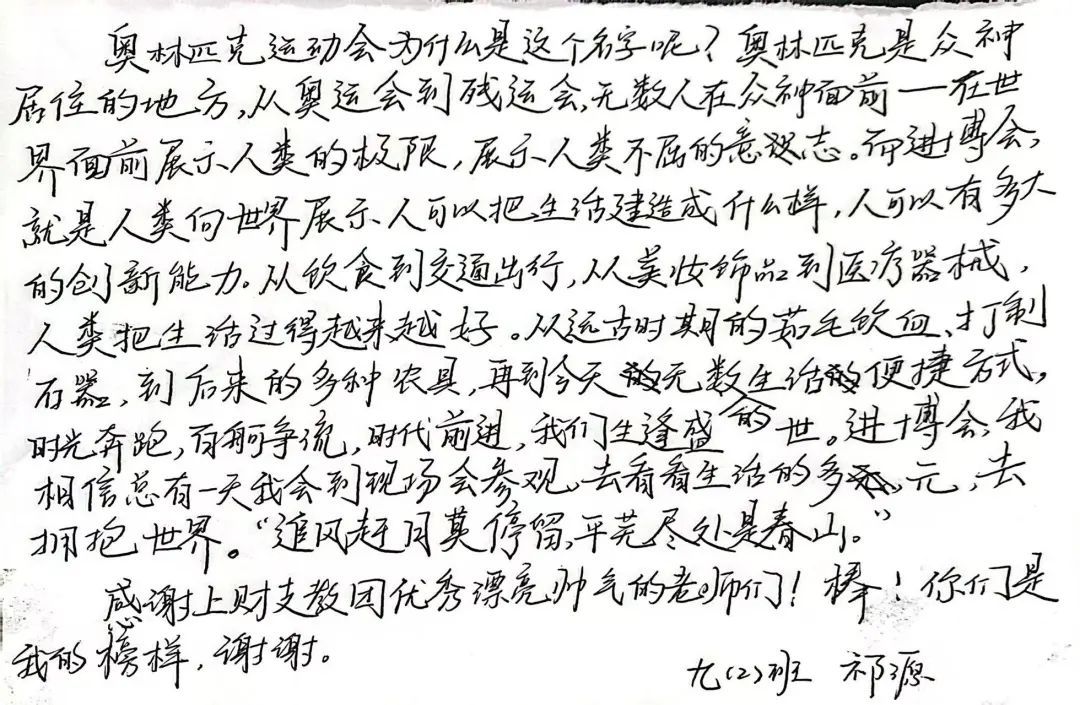 奥林匹克运动会为什么是这个名字呢？奥林匹克是众神
居住的地方，从奥运会到残运会，无数人在众神面前一在世
界面前展示人类的极限，展示人类不屈的意志。而进博会，
就是人类向世界展示人可以把生活建造成什么样，人可以有多大
的创新能力。从饮食到交通出行，从美妆饰品到医疗器械，
人类把生活过得越来越好。从远古时期的茹毛饮血、打制
石器，到后来的多种农具，再到今天无数生活便捷方式，
时光奔跑，百舸争流，时代前进，我们生逢盛的世。进博会，我
相信总有一天我会到现场会参观，去看看生活的多元，去
拥抱世界。“追风赶月莫停留，平芜尽处是春山。”
感谢上财支教团优秀漂亮帅气的老师们！棒！你们是
我的榜样，谢谢。
九(2)班 祁源